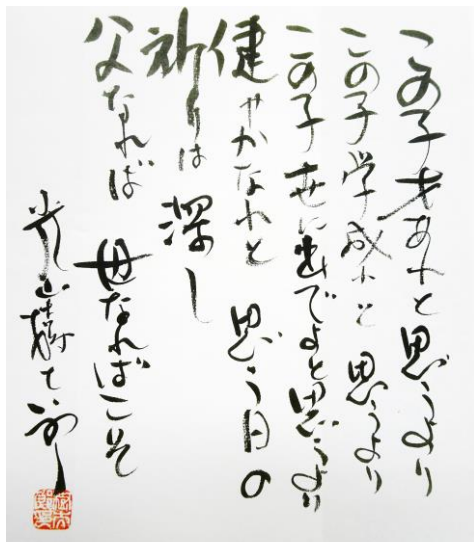 この子才あれと思うより
この子学成れと 思うより
この子世に出でよと思うより
健やかなれと 思う日の
祈りは 深し
父なれば 母なればこそ